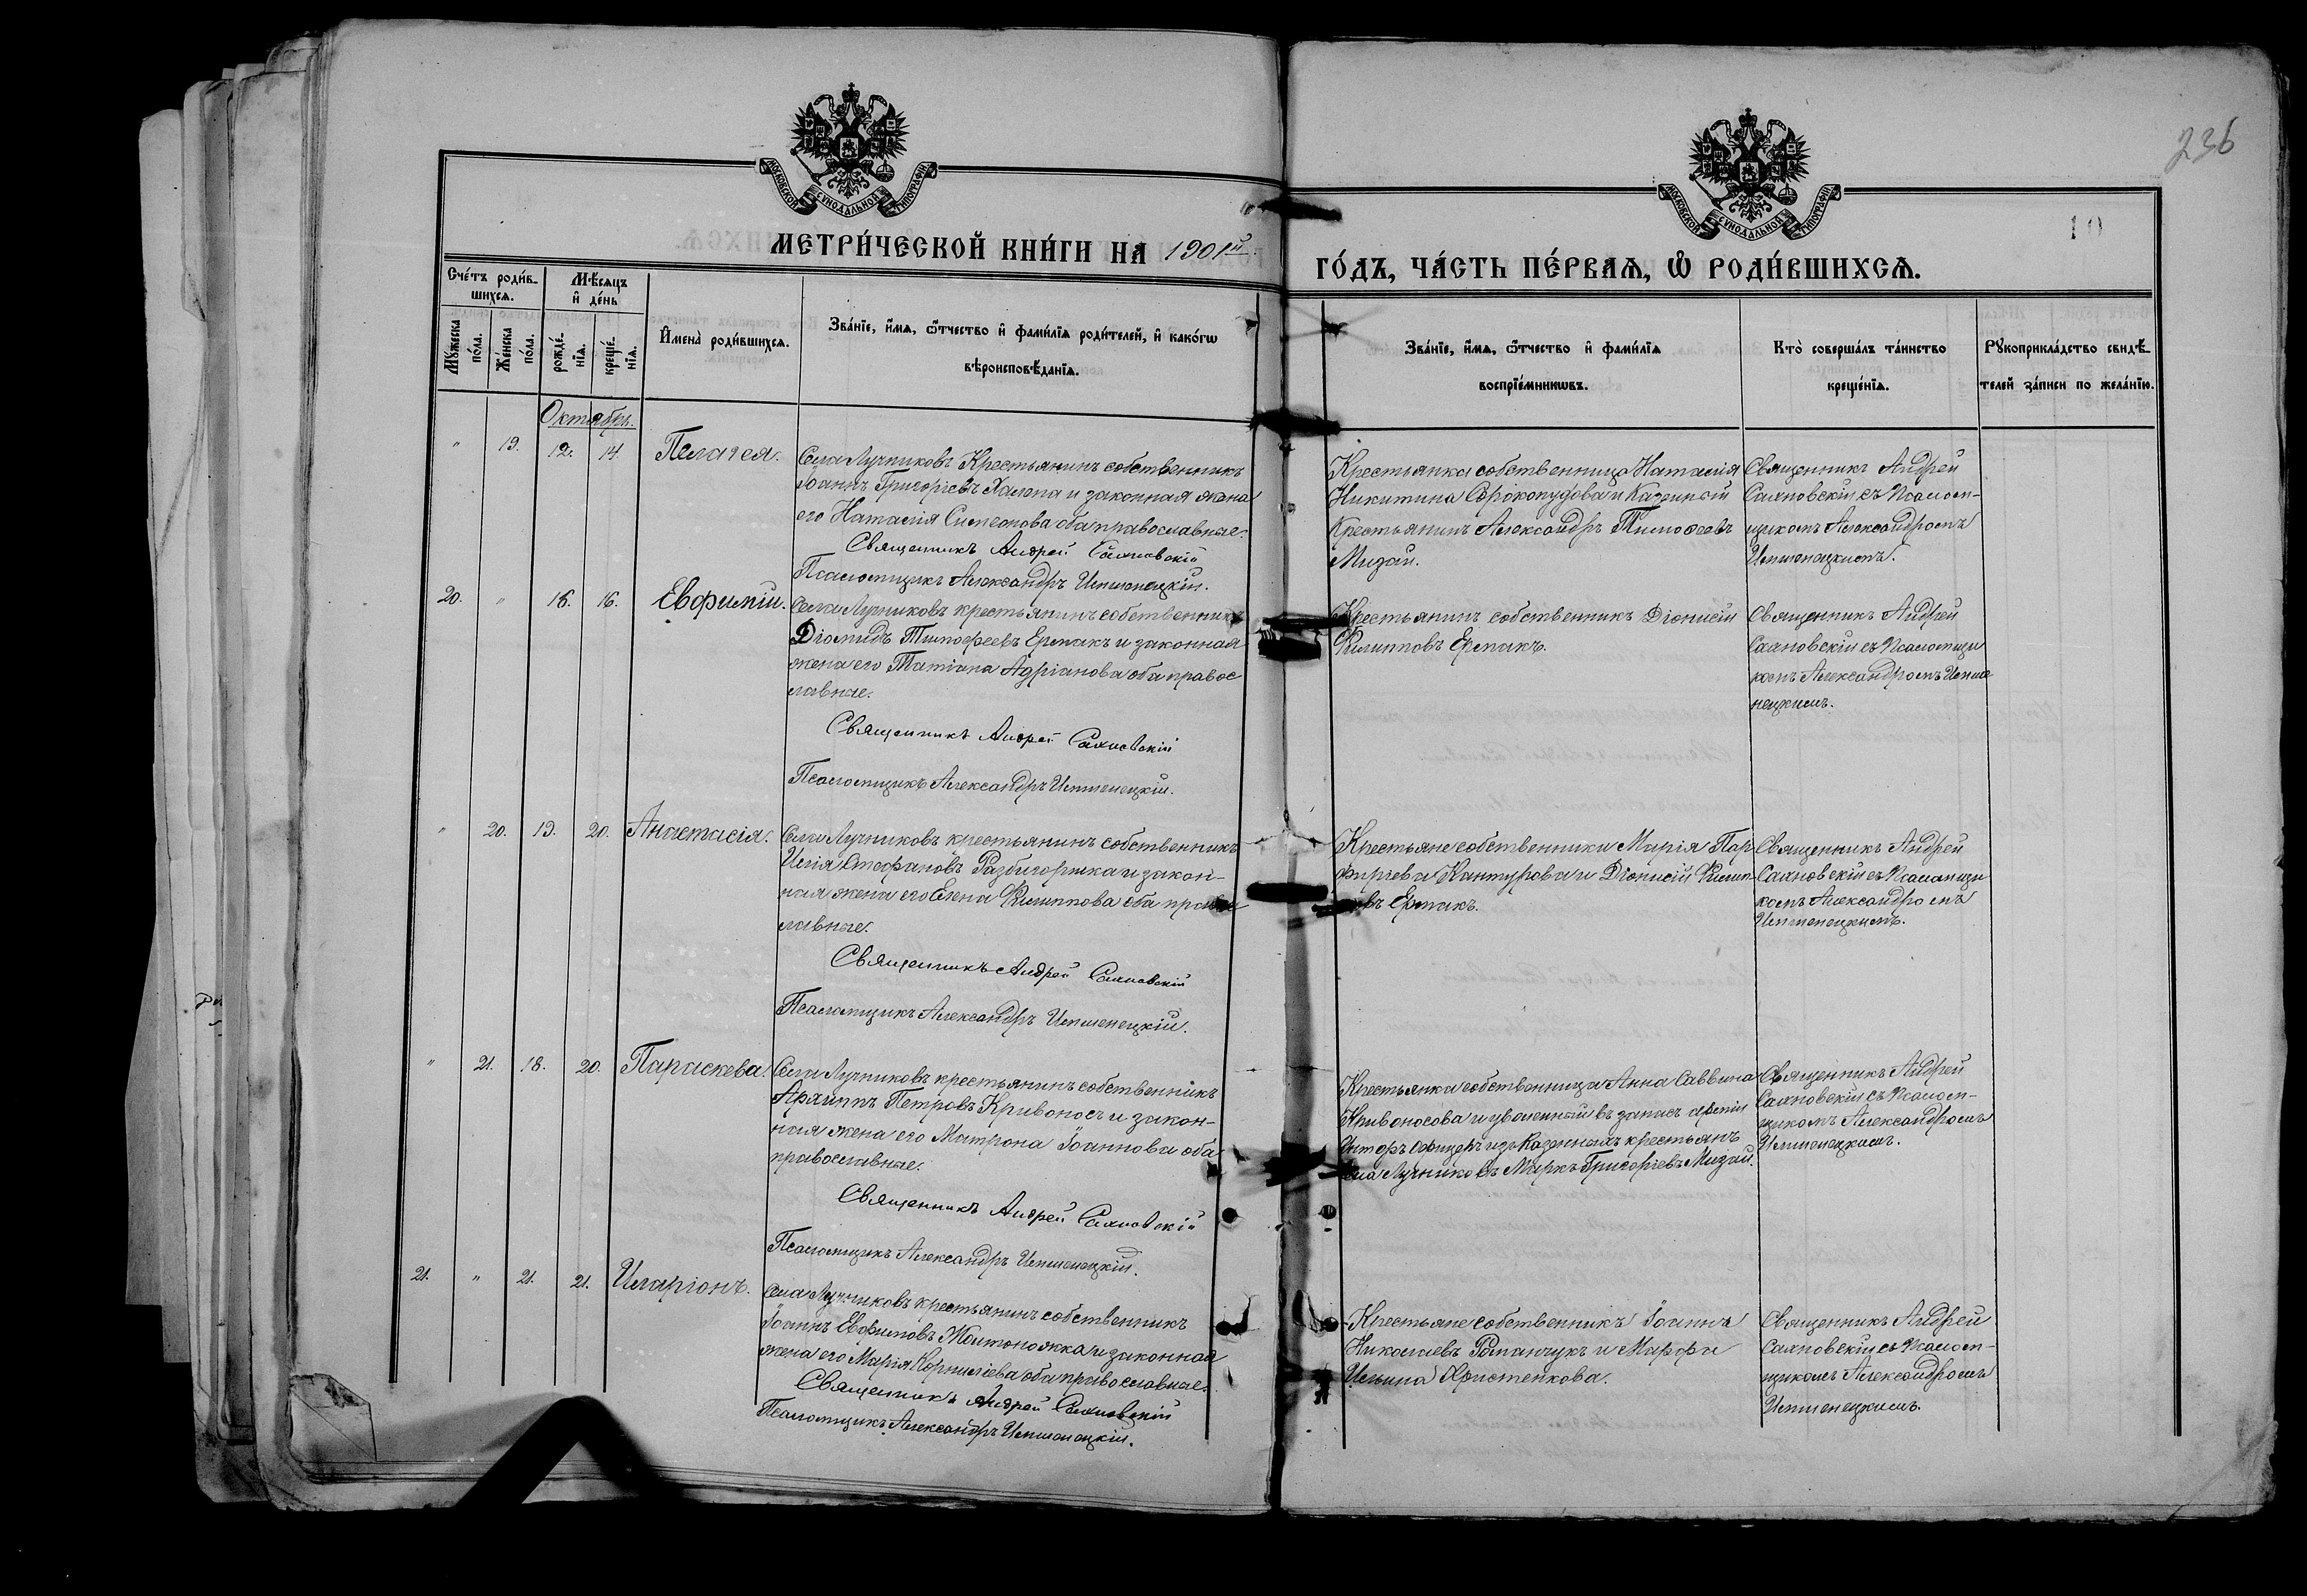 236
10
МОСКОВСКОЙ СѴНОДАЛЬНОЙ ТИПОГРАФІИ
МОСКОВСКОЙ СѴНОДАЛЬНОЙ ТИПОГРАФІИ
МЕТРИ́ЧЕСКОЙ КНИ́ГИ НА 1901й
ГО́ДЪ, ЧА́СТЬ ПЕ́РВАѦ, Ѽ РОДИ́ВШИХСѦ.
Счéтъ роди́в-
шихсѧ.
Мѣ́сѧцъ
и҆ де́нь
Мꙋ́жеска
по́ла.
Же́нска
по́ла.
рожде́-
нїѧ.
креще́-
нїѧ.
И҆мена̀ роди́вшихсѧ.
Зва́нїе, и҆́мѧ, ѻ҆́тчество и҆ фами́лїѧ роди́телей, и҆ како́гѡ
вѣроисповѣ́данїѧ.
Зва́нїе, и҆́мѧ, ѻ҆́тчество и҆ фами́лїѧ
воспрїе́мникѡвъ.
Кто̀ соверша́лъ та́инство
креще́нїѧ.
Рꙋкоприкла́дство свидѣ́-
телей за́писи по жела́нїю.
Октябрь.
" 19. 12. 14. Пелагея.
Села Лучниковъ Крестьянинъ собственникъ
Іоаннъ Григоріевъ Халепа и законная жена
его Наталія Симеонова оба православные.
Священникъ Андрей Сахновскій
Псаломщикъ Александръ
Крестьянка собственница Наталія
Никитина Сорокопудова и Казенный
Крестьянинъ Александръ Тимофеевъ
Мизай.
Священникъ Андрей
Сахновскій съ Псалом-
щикомъ Александромъ
20. " 16. 16. Евфимій.
Села Лучниковъ крестьянинъ собственникъ
Діомидъ Тимофеевъ Ермакъ и законная
жена его Татіана Адріанова оба правос
лавные.
Священникъ Андрей Сахновскій
Псаломщикъ Александръ
Крестьянинъ собственникъ Діонисій
Филипповъ Ермакъ.
Священникъ Андрей
Сахновскій съ Псаломщи
комъ Александромъ
" 20. 19. 20. Анастасія.
Села Лучниковъ крестьянинъ собственникъ
Илія Стефановъ и закон-
ная жена его Елена Филиппова оба правос
лавные.
Священникъ Андрей Сахновскій
Псаломщикъ Александръ
Крестьяне собственники Марія Пор
фиріева Кантурова и Діонисій Филип
овъ Ермакъ.
Священникъ Андрей
Сахновскій съ Псаломщи
комъ Александромъ
" 21. 18. 20. Параскева.
Села Лучниковъ крестьянинъ собственникъ
Архиппъ Петровъ Кривоносъ и закон-
ная жена его Матрона Іоаннова оба
православные.
Священникъ Андрей Сахновскій
Псаломщикъ Александръ
Крестьянка собственница Анна Саввина
Кривоносова и уволенный въ запасъ арміи
Унтеръ Офицеръ изъ Казенныхъ крестьянъ
села Лучниковъ Маркъ Григоріевъ Мизай.
Священникъ Андрей
Сахновскій съ Псалом-
щикомъ Александромъ
21. " 21. 21. Иларіонъ.
Села Лучниковъ крестьянинъ собственникъ
Іоаннъ Евфимовъ Жовтоножка и законная
жена его Марія Корниліева оба православные.
Священникъ Андрей Сахновскій
Псаломщикъ Александръ
Крестьяне собственникъ Іоаннъ
Николаевъ Романчукъ и Марфа
Ильина Христенкова.
Священникъ Андрей
Сахновскій съ Псалом-
щикомъ Александромъ